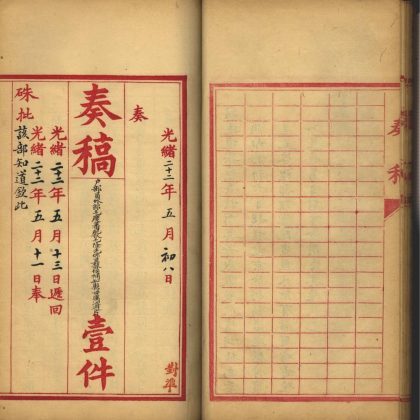 奏稿
光緒二十二年五月初八日
奏
奏稿
壹件
光緒二十二年五月十三日遞回
光緒二十二年五月十一日奉
硃批
該部知道欽此
對準